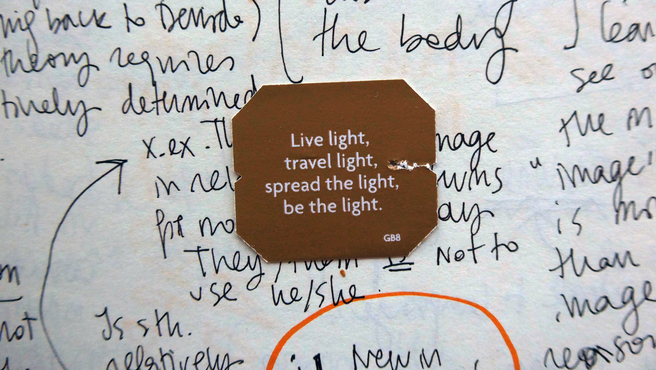 back to Derrida)
theory requires
tively determined
the body
lean
see
x.ex. Th
mage
in rel
the m
"image"
is mo
Live light,
travel light,
spread the light,
be the light.
GB8
They/them is Not to
use he/she.
than
image
reason
not
Is sth.
relatively
New in